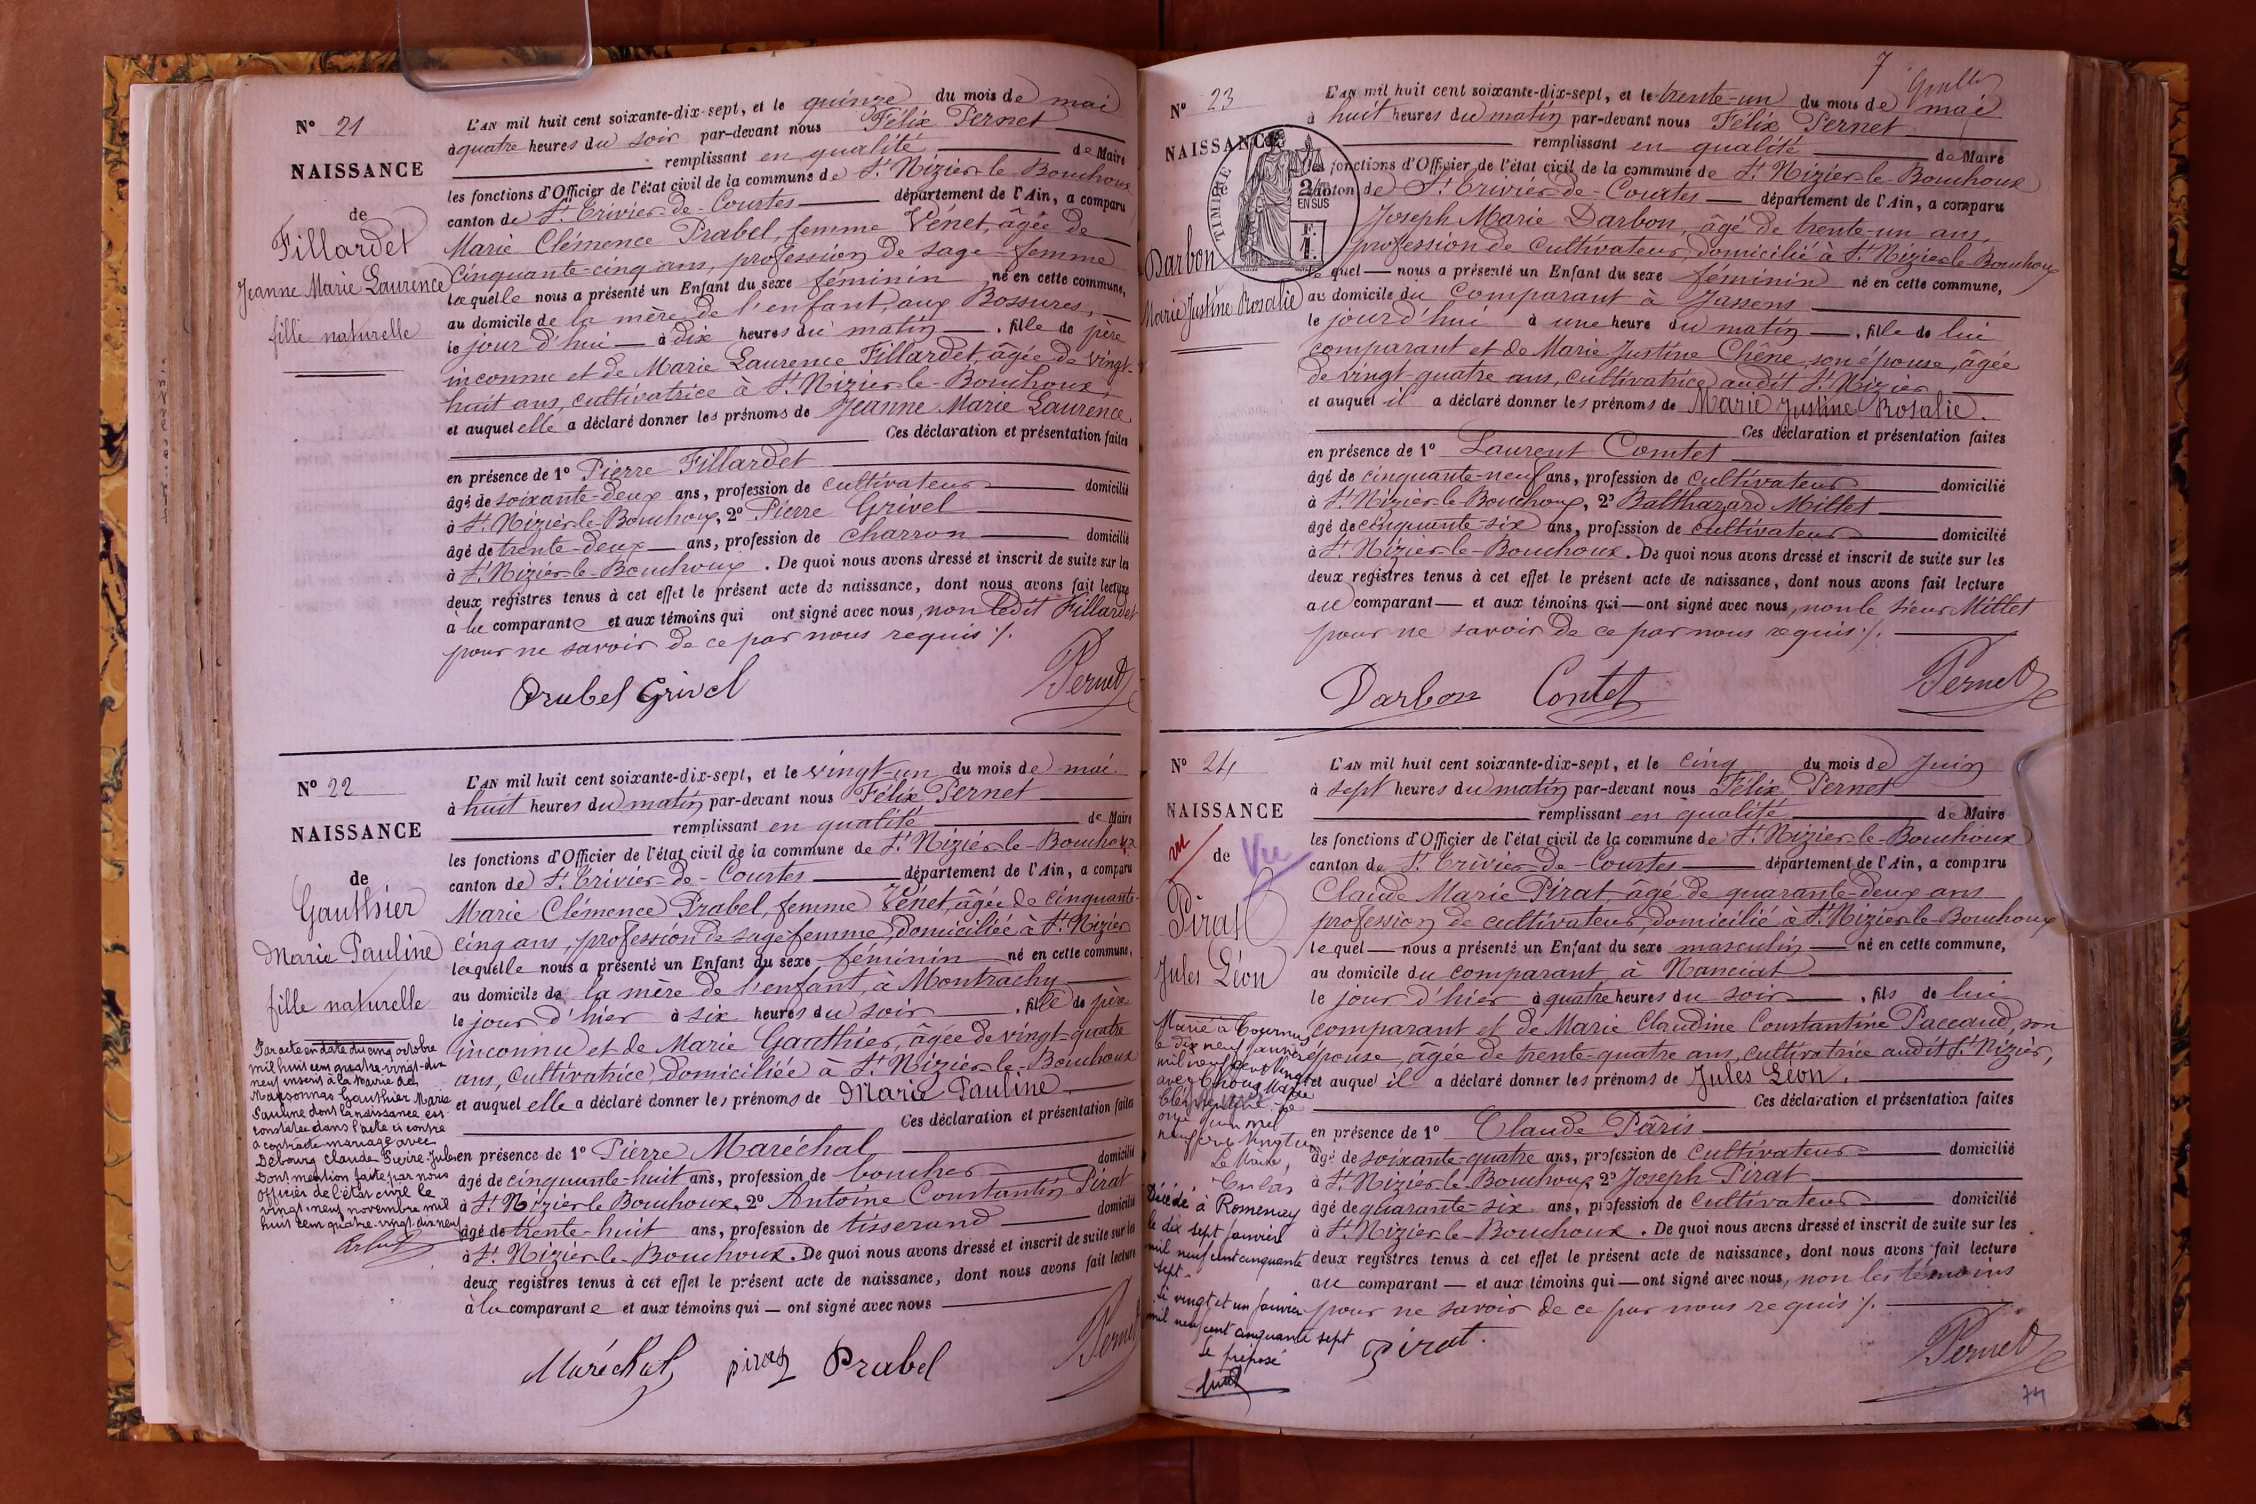 N° 21
NAISSANCE
de
Fillardet
Jeanne Marie Laurence
fille naturelle
L'AN mil huit cent soixante-dix-sept, et le quinze du mois de mai
à quatre heures du soir par-devant nous Félix Pernet
remplissant en qualité de Maire
les fonctions d'Officier de l'état civil de la commune de St Nizier-le-Bouchoux
canton de St Trivier-de-Courtes département de l'Ain, a comparu
Marie Clémence Prabel, femme Vénet, âgée de
cinquante-cinq ans, profession de sage-femme
laquelle nous a présenté un Enfant du sexe féminin né en cette commune,
au domicile de la mère de l'enfant, aux Bossures,
le jour d'hui à dix heures du matin, fille de père
inconnu et de Marie Laurence Fillardet, âgée de vingt-
huit ans, cultivatrice à St Nizier-le-Bouchoux,
et auquel elle a déclaré donner les prénoms de Jeanne Marie Laurence
Ces déclaration et présentation faites
en présence de 1° Pierre Fillardet
âgé de soixante-deux ans, profession de cultivateur domicilié
à St Nizier-le-Bouchoux, 2° Pierre Grivel
âgé de trente-deux ans, profession de charron domicilié
à St Nizier-le-Bouchoux. De quoi nous avons dressé et inscrit de suite sur les
deux registres tenus à cet effet le présent acte de naissance, dont nous avons fait lecture
à la comparante et aux témoins qui ont signé avec nous, non ledit Fillardet
pour ne savoir de ce par nous requis ./.
Prabel Grivel Pernet
N° 22
NAISSANCE
de
Gauthier
Marie Pauline
fille naturelle
Par acte en date du cinq octobre
mil huit cent quatre-vingt-dix
neuf inscrit à la Mairie de
Mansonnas Gauthier Marie
Pauline dont la naissance est
constatée dans l'acte ci contre
a contracté mariage avec
Debourg Claude Pierre Jules
Dont mention faite par nous
Officier de l'état civil le
vingt-neuf novembre mil
huit cent quatre-vingt-dix neuf
L'AN mil huit cent soixante-dix-sept, et le vingt-un du mois de mai
à huit heures du matin par-devant nous Félix Pernet
remplissant en qualité de Maire
les fonctions d'Officier de l'état civil de la commune de St Nizier-le-Bouchoux
canton de St Trivier-de-Courtes département de l'Ain, a comparu
Marie Clémence Prabel, femme Vénet, âgée de cinquante-
cinq ans, profession de sage femme, domiciliée à St Nizier
laquelle nous a présenté un Enfant du sexe féminin né en cette commune,
au domicile de la mère de l'enfant, à Montrachy
le jour d'hier à six heures du soir, fille de père
inconnu et de Marie Gauthier, âgée de vingt-quatre
ans, cultivatrice, domiciliée à St Nizier-le-Bouchoux
et auquel elle a déclaré donner les prénoms de Marie Pauline
Ces déclaration et présentation faites
en présence de 1° Pierre Maréchal
âgé de cinquante-huit ans, profession de boucher domicilié
à St Nizier le Bouchoux, 2° Antoine Constantin Pirat
âgé de trente-huit ans, profession de tisserand domicilié
à St Nizier-le-Bouchoux. De quoi nous avons dressé et inscrit de suite sur les
deux registres tenus à cet effet le présent acte de naissance, dont nous avons fait lecture
à la comparante et aux témoins qui ont signé avec nous
Maréchal pirat Prabel Pernet
7
N° 23
NAISSANCE
TIMBRE
2/10mes
EN SUS
F.
1.
Darbon
Marie Justine Rosalie
L'AN mil huit cent soixante-dix-sept, et le trente-un du mois de mai
à huit heures du matin par-devant nous Félix Pernet
remplissant en qualité de Maire
les fonctions d'Officier de l'état civil de la commune de St Nizier-le-Bouchoux
canton de St Trivier-de-Courtes département de l'Ain, a comparu
Joseph Marie Darbon, âgé de trente-un ans,
profession de cultivateur, domicilié à St Nizier-le-Bouchoux
le quel nous a présenté un Enfant du sexe féminin né en cette commune,
au domicile du comparant à Jassens
le jour d'hui à une heure du matin, fille de lui
comparant et de Marie Justine Chêne, son épouse, âgée
de vingt-quatre ans, cultivatrice audit St Nizier
et auquel il a déclaré donner les prénoms de Marie Justine Rosalie.
Ces déclaration et présentation faites
en présence de 1° Laurent Comtet
âgé de cinquante-neuf ans, profession de cultivateur domicilié
à St Nizier-le-Bouchoux, 2° Balthazard Millet
âgé de cinquante-six ans, profession de cultivateur domicilié
à St Nizier-le-Bouchoux. De quoi nous avons dressé et inscrit de suite sur les
deux registres tenus à cet effet le présent acte de naissance, dont nous avons fait lecture
au comparant et aux témoins qui ont signé avec nous, non le sieur Millet
pour ne savoir de ce par nous requis ./.
Darbon Comtet Pernet
N° 24
NAISSANCE
de
Vu
Pirat
Jules Léon
Marié à Tournus
le dix neuf janvier
mil neuf cent vingt
avec
neuf cent vingt un
Le Maire,
Décédé à Romenay
le dix sept janvier
mil neuf cent cinquante
sept.
Le vingt et un janvier
mil neuf cent cinquante sept
Le préposé
L'AN mil huit cent soixante-dix-sept, et le cinq du mois de Juin
à sept heures du matin par-devant nous Félix Pernet
remplissant en qualité de Maire
les fonctions d'Officier de l'état civil de la commune de St Nizier-le-Bouchoux
canton de St Trivier-de-Courtes département de l'Ain, a comparu
Claude Marie Pirat, âgé de quarante-deux ans
profession de cultivateur, domicilié à St Nizier-le-Bouchoux
le quel nous a présenté un Enfant du sexe masculin né en cette commune,
au domicile du comparant, à Nanciat
le jour d'hier à quatre heures du soir, fils de lui
comparant et de Marie Claudine Constantine Paccaud, son
épouse, âgée de trente-quatre ans, cultivatrice audit St Nizier,
et auquel il a déclaré donner les prénoms de Jules Léon.
Ces déclaration et présentation faites
en présence de 1° Claude Pâris
âgé de soixante-quatre ans, profession de cultivateur domicilié
à St Nizier-le-Bouchoux, 2° Joseph Pirat
âgé de quarante-six ans, profession de cultivateur domicilié
à St Nizier-le-Bouchoux. De quoi nous avons dressé et inscrit de suite sur les
deux registres tenus à cet effet le présent acte de naissance, dont nous avons fait lecture
au comparant et aux témoins qui ont signé avec nous, non les témoins
pour ne savoir de ce par nous requis ./.
Pirat. Pernet